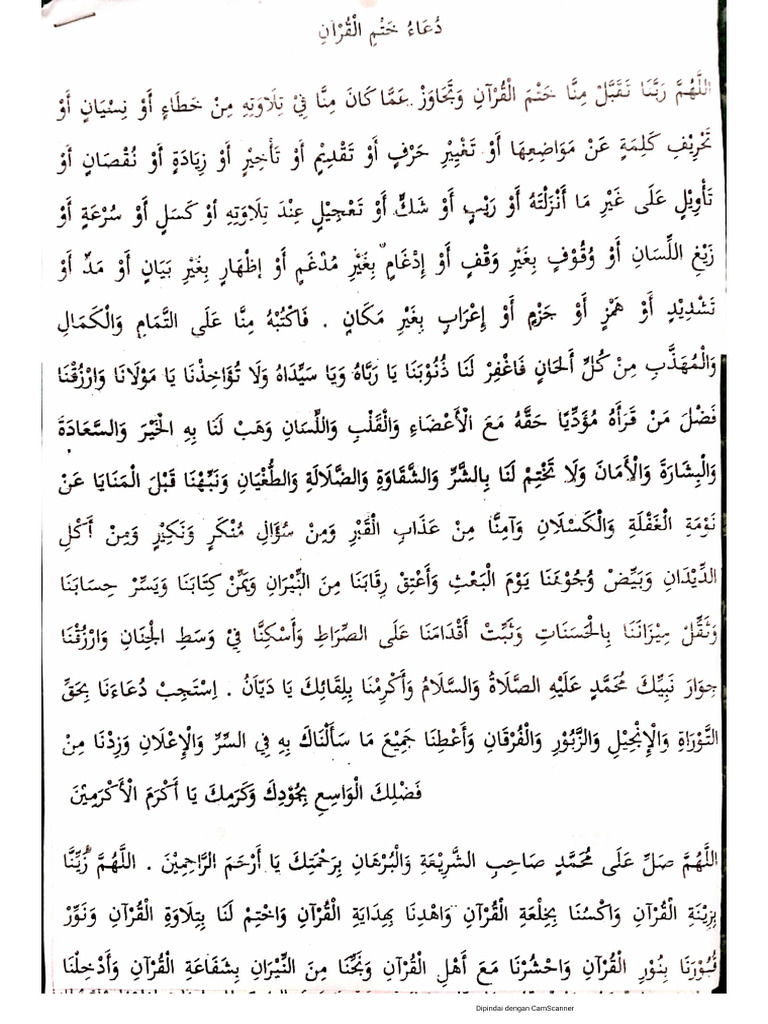 دُعَاءُ خَتْمِ الْقُرْآنِ
اللَّهُمَّ رَبَّنَا تَقَبَّلْ مِنَّا خَتْمَ الْقُرْآنِ وَتَجَاوَزْ عَمَّا كَانَ مِنَّا فِيْ تِلَاوَتِهِ مِنْ خَطَاءٍ أَوْ نِسْيَانٍ أَوْ
تَحْرِيْفِ كَلِمَةٍ عَنْ مَوَاضِعِهَا أَوْ تَغْيِيْرِ حَرْفٍ أَوْ تَقْدِيْمٍ أَوْ تَأْخِيْرٍ أَوْ زِيَادَةٍ أَوْ نُقْصَانٍ أَوْ
تَأْوِيْلٍ عَلَى غَيْرِ مَا أَنْزَلْتَهُ أَوْ رَيْبٍ أَوْ شَكٍّ أَوْ تَعْجِيْلٍ عِنْدَ تِلَاوَتِهِ أَوْ كَسَلٍ أَوْ سُرْعَةٍ أَوْ
زَيْغِ اللِّسَانِ أَوْ وُقُوْفٍ بِغَيْرِ وَقْفٍ أَوْ إِدْغَامٍ بِغَيْرِ مُدْغَمٍ أَوْ إِظْهَارٍ بِغَيْرِ بَيَانٍ أَوْ مَدٍّ أَوْ
تَشْدِيْدٍ أَوْ هَمْزٍ أَوْ جَزْمٍ أَوْ إِعْرَابٍ بِغَيْرِ مَكَانٍ . فَاكْتُبْهُ مِنَّا عَلَى التَّمَامِ وَالْكَمَالِ
وَالْمُهَذَّبِ مِنْ كُلِّ أَلْحَانٍ فَاغْفِرْ لَنَا ذُنُوْبَنَا يَا رَبَّاهُ وَيَا سَيِّدَاهُ وَلَا تُؤَاخِذْنَا يَا مَوْلَانَا وَارْزُقْنَا
فَضْلَ مَنْ قَرَأَهُ مُؤَدِّيًا حَقَّهُ مَعَ الْأَعْضَاءِ وَالْقَلْبِ وَاللِّسَانِ وَهَبْ لَنَا بِهِ الْخَيْرَ وَالسَّعَادَةَ
وَالْبِشَارَةَ وَالْأَمَانَ وَلَا تَخْتِمْ لَنَا بِالشَّرِّ وَالشَّقَاوَةِ وَالضَّلَالَةِ وَالطُّغْيَانِ وَنَبِّهْنَا قَبْلَ الْمَنَايَا عَنْ
نَوْمَةِ الْغَفْلَةِ وَالْكَسْلَانِ وَآمِنَّا مِنْ عَذَابِ الْقَبْرِ وَمِنْ سُؤَالِ مُنْكَرٍ وَنَكِيْرٍ وَمِنْ أَكْلِ
الدِّيْدَانِ وَبَيِّضْ وُجُوْهَنَا يَوْمَ الْبَعْثِ وَأَعْتِقْ رِقَابَنَا مِنَ النِّيْرَانِ وَيَمِّنْ كِتَابَنَا وَيَسِّرْ حِسَابَنَا
وَثَقِّلْ مِيْزَانَنَا بِالْحَسَنَاتِ وَثَبِّتْ أَقْدَامَنَا عَلَى الصِّرَاطِ وَأَسْكِنَّا فِيْ وَسَطِ الْجِنَانِ وَارْزُقْنَا
جِوَارَ نَبِيِّكَ مُحَمَّدٍ عَلَيْهِ الصَّلَاةُ وَالسَّلَامُ وَأَكْرِمْنَا بِلِقَائِكَ يَا دَيَّانُ . اِسْتَجِبْ دُعَاءَنَا بِحَقِّ
التَّوْرَاةِ وَالْإِنْجِيْلِ وَالزَّبُوْرِ وَالْفُرْقَانِ وَأَعْطِنَا جَمِيْعَ مَا سَأَلْنَاكَ بِهِ فِي السِّرِّ وَالْإِعْلَانِ وَزِدْنَا مِنْ
فَضْلِكَ الْوَاسِعِ بِجُوْدِكَ وَكَرَمِكَ يَا أَكْرَمَ الْأَكْرَمِيْنَ
اللَّهُمَّ صَلِّ عَلَى مُحَمَّدٍ صَاحِبِ الشَّرِيْعَةِ وَالْبُرْهَانِ بِرَحْمَتِكَ يَا أَرْحَمَ الرَّاحِمِيْنَ . اللَّهُمَّ زَيِّنَّا
بِزِيْنَةِ الْقُرْآنِ وَاكْسُنَا بِخِلْعَةِ الْقُرْآنِ وَاهْدِنَا بِهِدَايَةِ الْقُرْآنِ وَاخْتِمْ لَنَا بِتِلَاوَةِ الْقُرْآنِ وَنَوِّرْ
قُبُوْرَنَا بِنُوْرِ الْقُرْآنِ وَاحْشُرْنَا مَعَ أَهْلِ الْقُرْآنِ وَنَجِّنَا مِنَ النِّيْرَانِ بِشَفَاعَةِ الْقُرْآنِ وَأَدْخِلْنَا
Dipindai dengan CamScanner